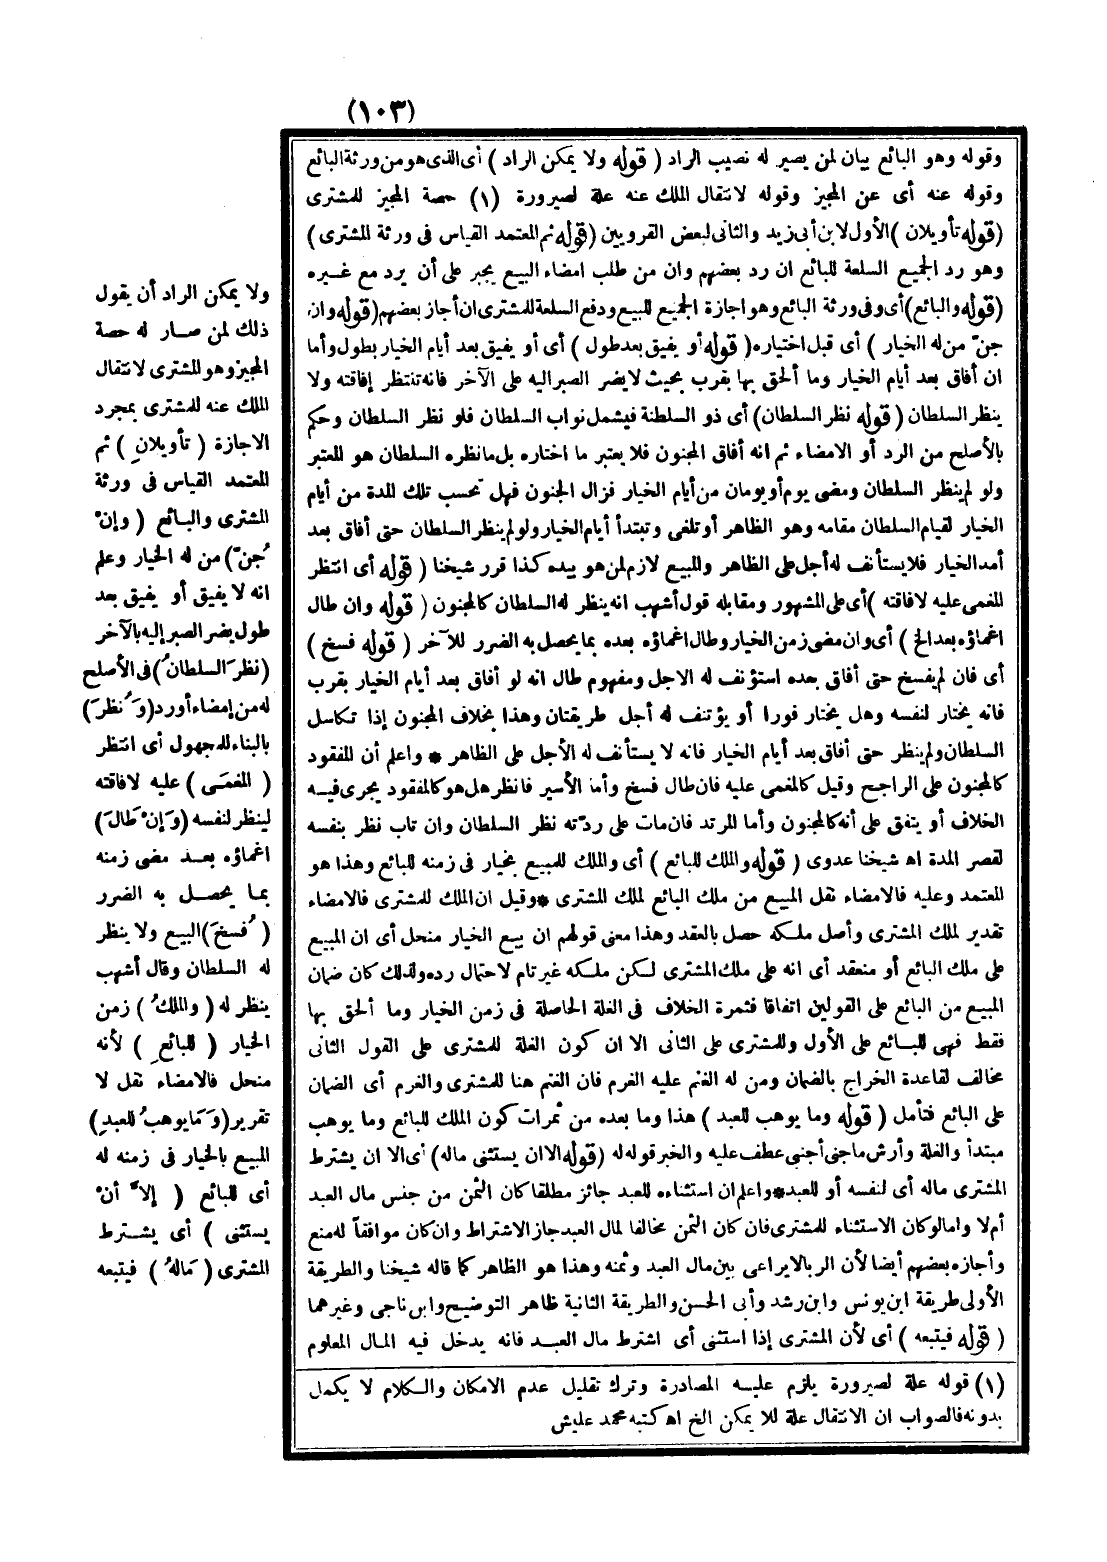 (١٠٣)
وقوله وهو البائع بيان لمن يصير له نصيب الراد ( قوله ولا يمكن الراد ) أى الذى هو من ورثة البائع
وقوله عنه أى عن المجيز وقوله لانتقال الملك عنه علة لصيرورة (١) حصة المجيز للمشترى
(قوله تأويلان ) الأول لابن أبى زيد والثانى لبعض القرويين (قوله ثم المعتمد القياس فى ورثة المشترى)
وهو رد الجميع السلعة للبائع ان رد بعضهم وان من طلب امضاء البيع يجبر على أن يرد مع غيره
(قوله والبائع) أى وفى ورثة البائع وهو اجازة الجميع للبيع ودفع السلعة للمشترى ان أجاز بعضهم (قوله وان
جنّ من له الخيار ) أى قبل اختياره ( قوله أو يفيق بعد طول ) أى أو يفيق بعد أيام الخيار بطول وأما
ان أفاق بعد أيام الخيار وما ألحق بها بقرب بحيث لا يضر الصبر اليه على الآخر فانه تنتظر إفاقته ولا
ينظر السلطان ( قوله نظر السلطان) أى ذو السلطنة فيشمل نواب السلطان فلو نظر السلطان وحكم
بالأصلح من الرد أو الامضاء ثم انه أفاق المجنون فلا يعتبر ما اختاره بل ما نظره السلطان هو المعتبر
ولو لم ينظر السلطان ومضى يوم أو يومان من أيام الخيار فزال الجنون فهل تحسب تلك المدة من أيام
الخيار لقيام السلطان مقامه وهو الظاهر أو تلغى وتبتدأ أيام الخيار ولو لم ينظر السلطان حتى أفاق بعد
أمد الخيار فلا يستأنف له أجل على الظاهر والمبيع لازم لمن هو بيده كذا قرر شيخنا ( قوله أى انتظر
المغمى عليه لافاقته ) أى على المشهور ومقابله قول أشهب انه ينظر له السلطان كالمجنون ( قوله وان طال
اغماؤه بعد الخ ) أى وان مضى زمن الخيار وطال اغماؤه بعده بما يحصل به الضرر للآخر ( قوله فسخ )
أى فان لم يفسخ حتى أفاق بعده استؤنف له الاجل ومفهوم طال انه لو أفاق بعد أيام الخيار بقرب
فانه يختار لنفسه وهل يختار فورا أو يؤتنف له أجل طريقتان وهذا بخلاف المجنون إذا تكاسل
السلطان ولم ينظر حتى أفاق بعد أيام الخيار فانه لا يستأنف له الأجل على الظاهر * واعلم أن المفقود
كالمجنون على الراجح وقيل كالمغمى عليه فان طال فسخ وأما الأسير فانظر هل هو كالمفقود يجرى فيه
الخلاف أو يتفق على أنه كالمجنون وأما المرتد فان مات على ردّته نظر السلطان وان تاب نظر بنفسه
لقصر المدة اه شيخنا عدوى ( قوله والملك للبائع ) أى والملك للمبيع بخيار فى زمنه للبائع وهذا هو
المعتمد وعليه فالامضاء نقل المبيع من ملك البائع لملك المشترى * وقيل ان الملك للمشترى فالامضاء
تقدير لملك المشترى وأصل ملكه حصل بالعقد وهذا معنى قولهم ان بيع الخيار منحل أى ان المبيع
على ملك البائع أو منعقد أى انه على ملك المشترى لكن ملكه غير تام لاحتمال رده ولذلك كان ضمان
المبيع من البائع على القولين اتفاقا فثمرة الخلاف فى الغلة الحاصلة فى زمن الخيار وما ألحق بها
فقط فهى للبائع على الأول وللمشترى على الثانى الا ان كون الغلة للمشترى على القول الثانى
مخالف لقاعدة الخراج بالضمان ومن له الغنم عليه الغرم فان الغنم هنا للمشترى والغرم أى الضمان
على البائع فتأمل ( قوله وما يوهب للعبد ) هذا وما بعده من ثمرات كون الملك للبائع وما يوهب
مبتدأ والغلة وأرش ما جنى أجنبى عطف عليه والخبر قوله له (قوله الا ان يستثنى ماله) أى الا ان يشترط
المشترى ماله أى لنفسه أو للعبد * واعلم ان استثناءه للعبد جائز مطلقا كان الثمن من جنس مال العبد
أم لا وأما لو كان الاستثناء للمشترى فان كان الثمن مخالفا لمال العبد جاز الاشتراط وان كان موافقاً له منع
وأجازه بعضهم أيضا لأن الربا لا يراعى بين مال العبد وثمنه وهذا هو الظاهر كما قاله شيخنا والطريقة
الأولى طريقة ابن يونس وابن رشد وأبى الحسن والطريقة الثانية ظاهر التوضيح وابن ناجى وغيرهما
( قوله فيتبعه ) أى لأن المشترى إذا استثنى أى اشترط مال العبد فانه يدخل فيه المال المعلوم
(١) قوله علة لصيرورة يلزم عليه المصادرة وترك تقليل عدم الامكان والكلام لا يكمل
بدونه فالصواب ان الانتقال علة للا يمكن الخ اه كتبه محمد عليش
ولا يمكن الراد أن يقول
ذلك لمن صار له حصة
المجيز وهو المشترى لانتقال
الملك عنه للمشترى بمجرد
الاجازة ( تأويلانِ ) ثم
المعتمد القياس فى ورثة
المشترى والبائع ( وإنْ
جُنّ) من له الخيار وعلم
انه لا يفيق أو يفيق بعد
طول يضر الصبر إليه بالآخر
(نظرَ السلطانُ) فى الأصلح
له من إمضاء أو رد (وَنُظرَ)
بالبناء للمجهول أى انتظر
( المغمَى ) عليه لافاقته
لينظر لنفسه (وَإنْ طَالَ)
اغماؤه بعد مضى زمنه
بما يحصل به الضرر
( فُسخَ) البيع ولا ينظر
له السلطان وقال أشهب
ينظر له ( والملكُ ) زمن
الخيار ( للبائعِ ) لأنه
منحل فالامضاء نقل لا
تقرير (وَمَا يوهبُ للعبدِ)
المبيع بالخيار فى زمنه له
أى للبائع ( إلاّ أنْ
يستثنى ) أى يشترط
المشترى ( مَالهُ ) فيتبعه